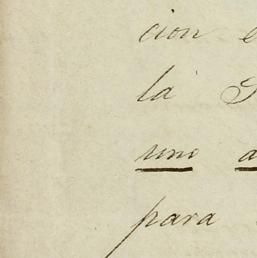 cion e
la
uno a
para